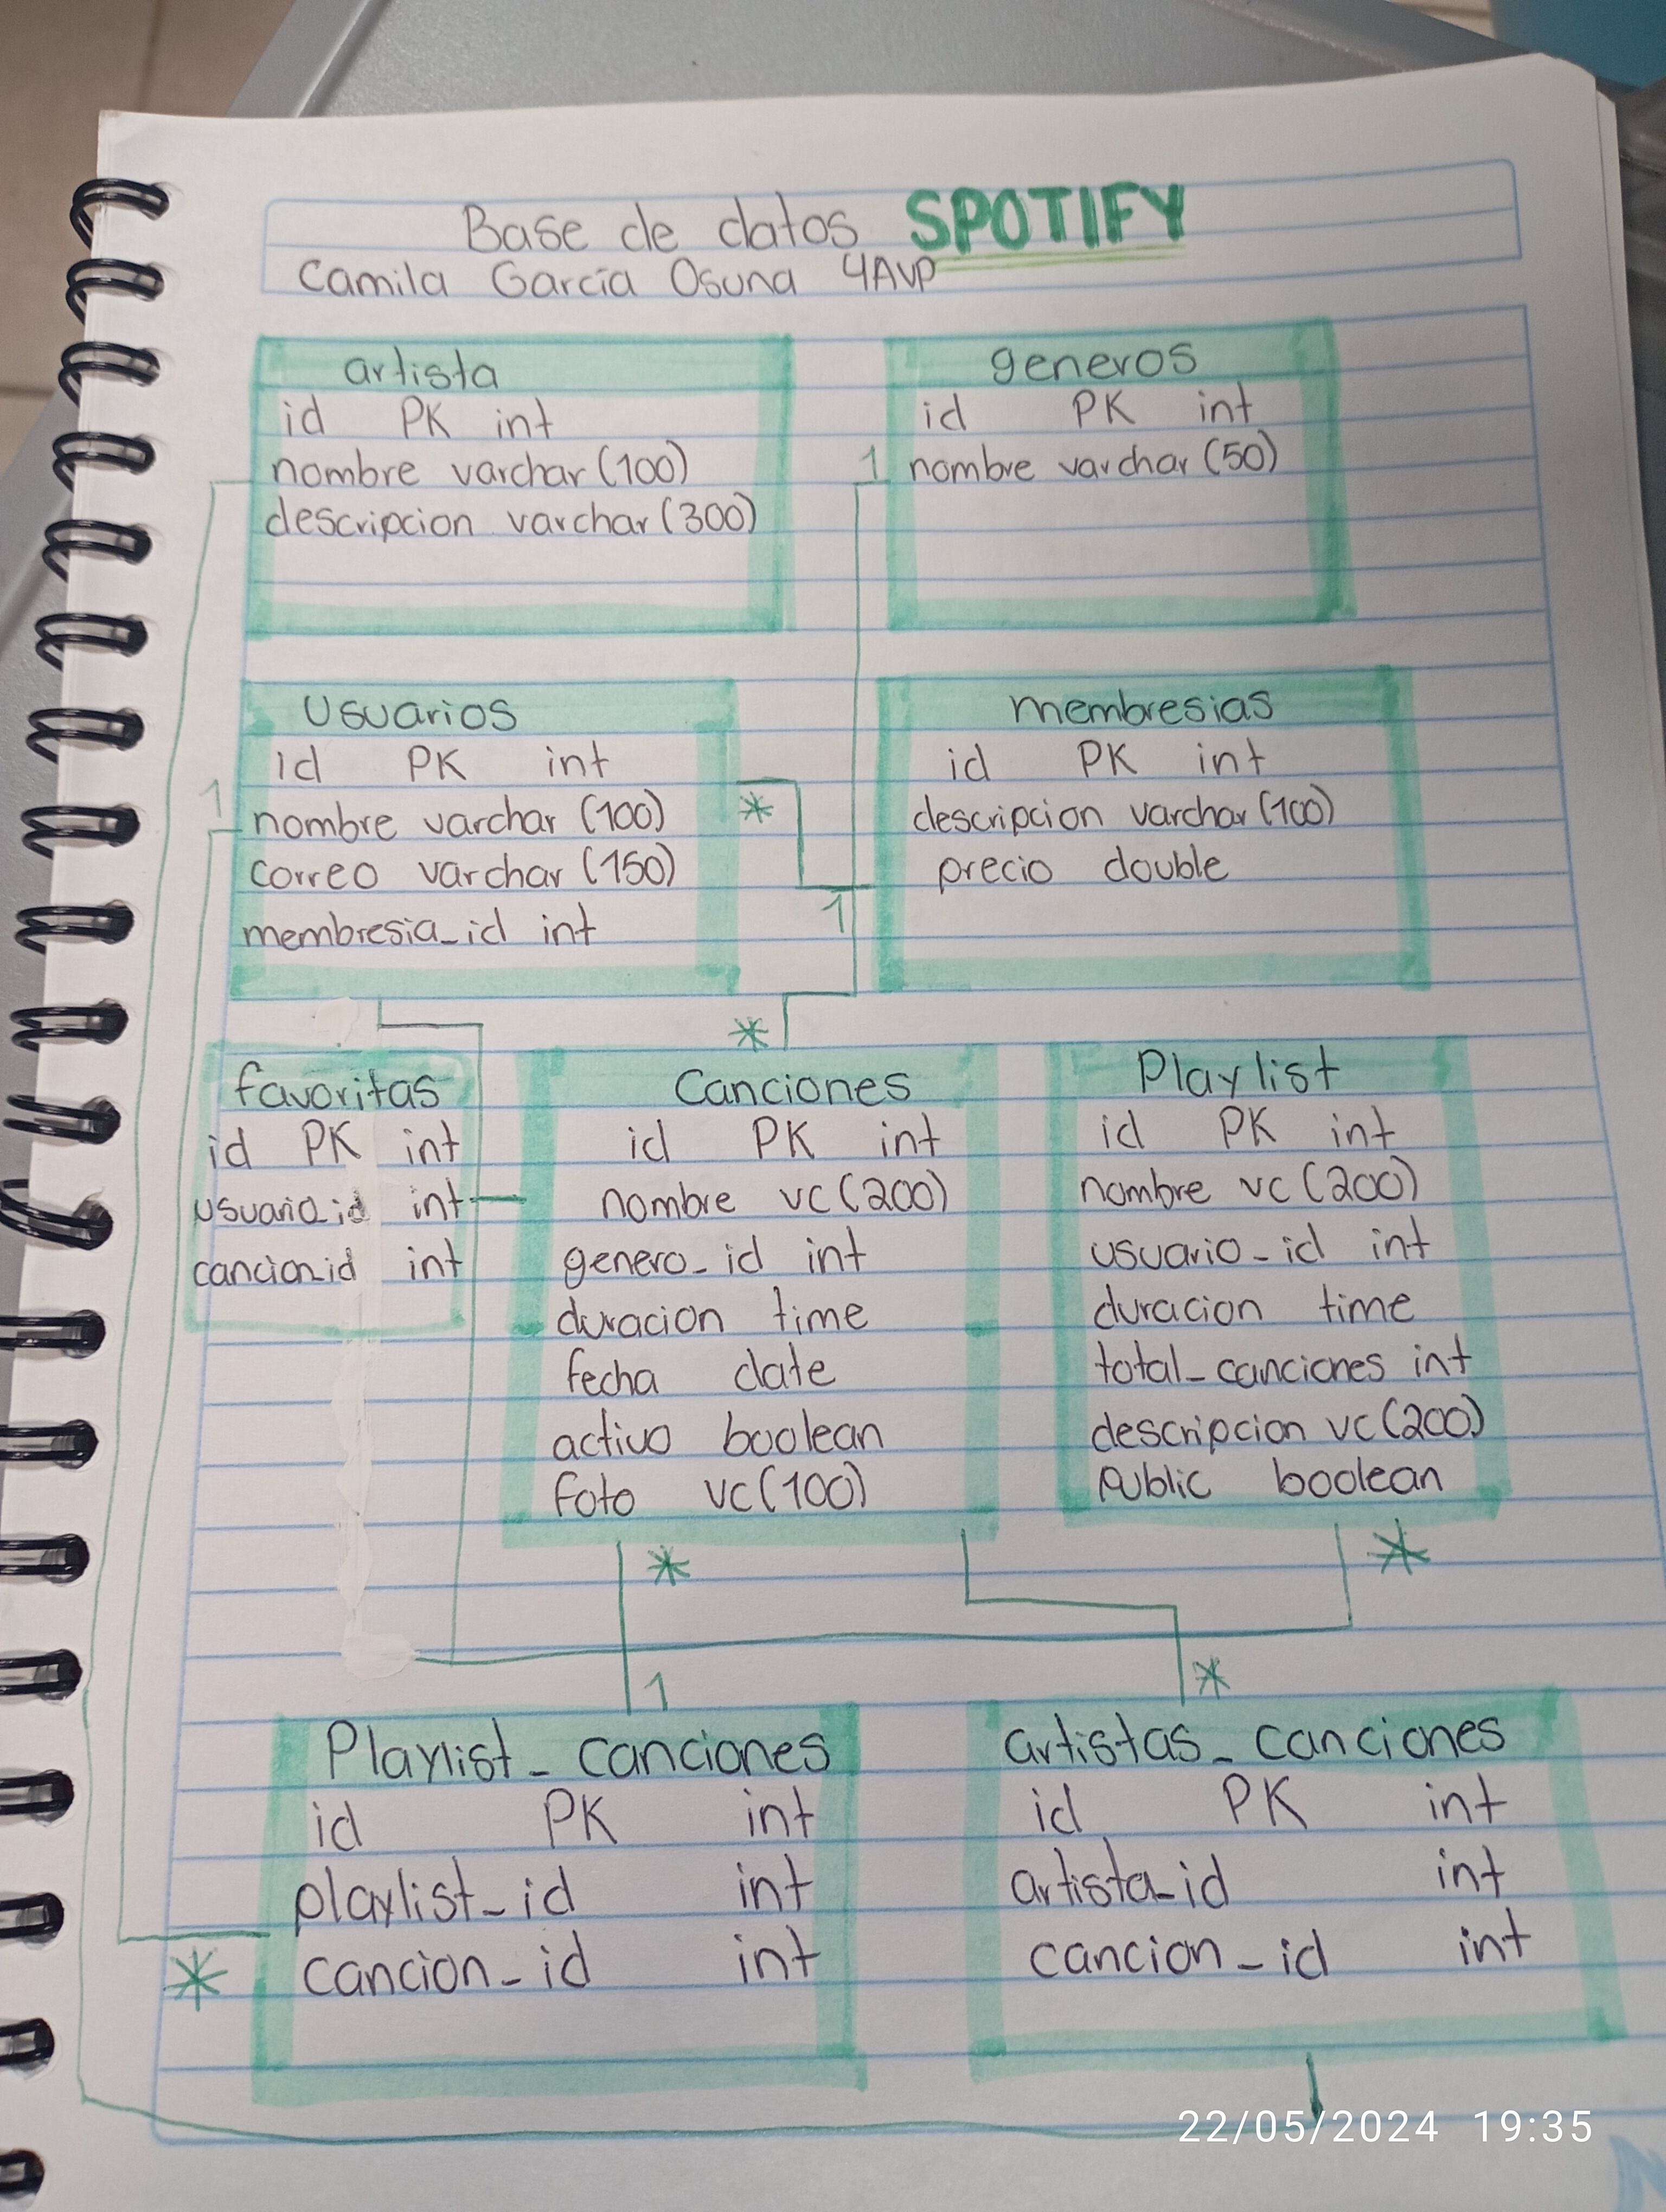 Base de datos SPOTIFY
Camila García Osuna 4AVP
artista
id PK int
nombre varchar (100)
descripcion varchar (300)
generos
id PK int
1 nombre varchar (50)
Usuarios
id PK int
1
nombre varchar (100)
correo varchar (150)
membresia_id int
*
1
membresias
id PK int
descripcion varchar (100)
precio double
*
favoritas
id PK int
usuario_id int
cancion_id int
Canciones
id PK int
nombre vc (200)
genero_id int
duracion time
fecha date
activo boolean
foto vc (100)
Playlist
id PK int
nombre vc (200)
usuario_id int
duracion time
total_canciones int
descripcion vc (200)
public boolean
*
*
1
*
Playlist_canciones
id PK int
playlist_id int
cancion_id int
*
artistas_canciones
id PK int
artista_id int
cancion_id int
22/05/2024 19:35